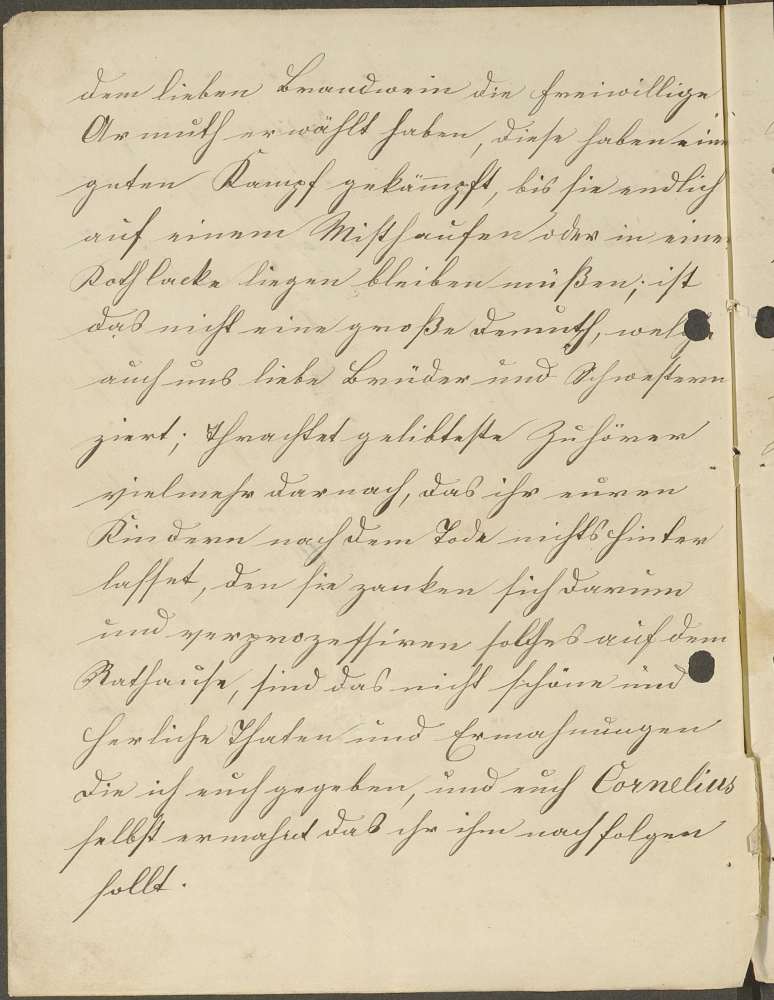 dem lieben Brandwein die freiwillige
Armuth erwählt haben, diese haben eine
guten Kampf gekämpft, bis sie endlich
auf einem Misthaufen oder in eine
Kothlacke liegen bleiben müßen; ist
das nicht eine große Demuth, welche
auch uns liebe Brüder und Schwestern
ziert; Thrachtet gelibteste Zuhörer
vielmehr darnach, das ihr euren
Kindern nach dem Tode nichts hinter
lasset, den sie zanken sich darum
und verprozessiren solches auf dem
Rathause, sind das nicht schöne und
herliche Thaten und Ermahnungen
die ich euch gegeben, und euch Cornelius
selbst ermahnt das ihr ihm nachfolgen
sollt.